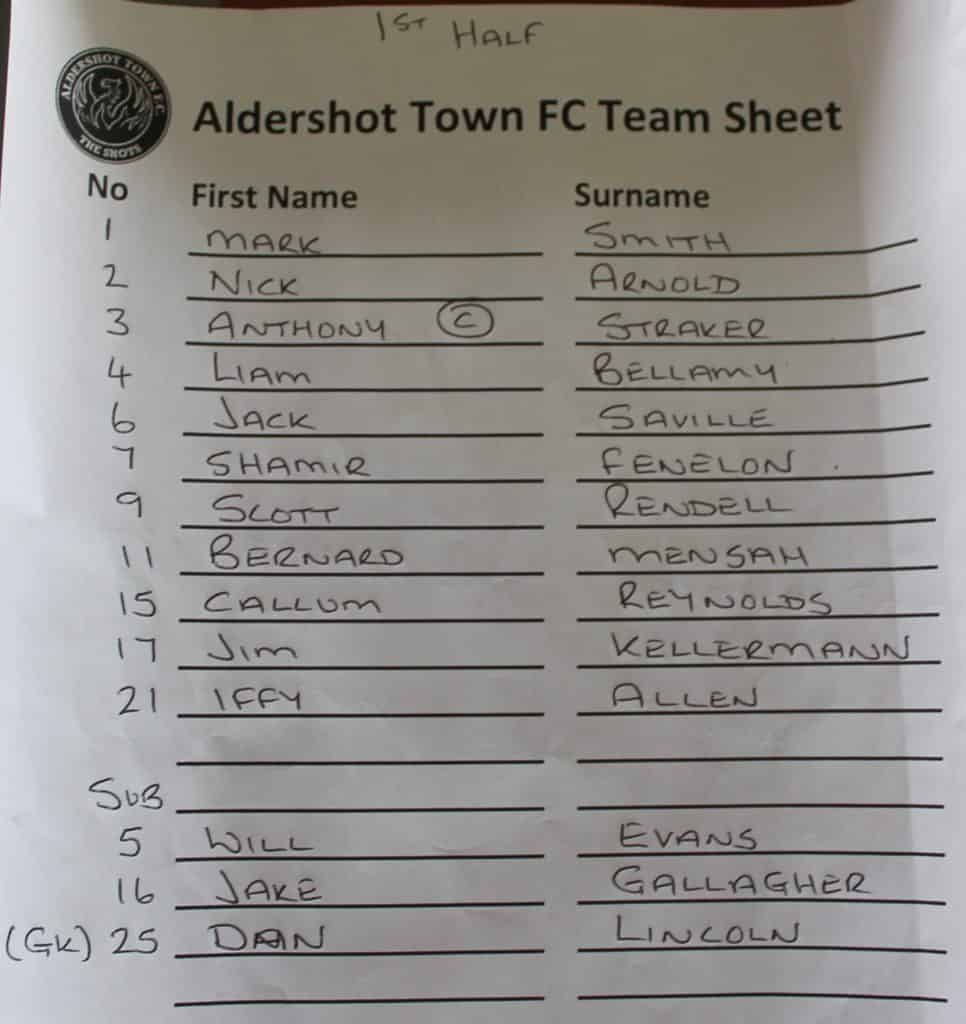 1ST HALF
ALDERSHOT TOWN F.C.
THE SHOTS
Aldershot Town FC Team Sheet
No First Name Surname
1 MARK SMITH
2 NICK ARNOLD
3 ANTHONY C STRAKER
4 LIAM BELLAMY
6 JACK SAVILLE
7 SHAMIR FENELON
9 SCOTT RENDELL
11 BERNARD MENSAH
15 CALLUM REYNOLDS
17 JIM KELLERMANN
21 IFFY ALLEN
SUB
5 WILL EVANS
16 JAKE GALLAGHER
(GK) 25 DAN LINCOLN